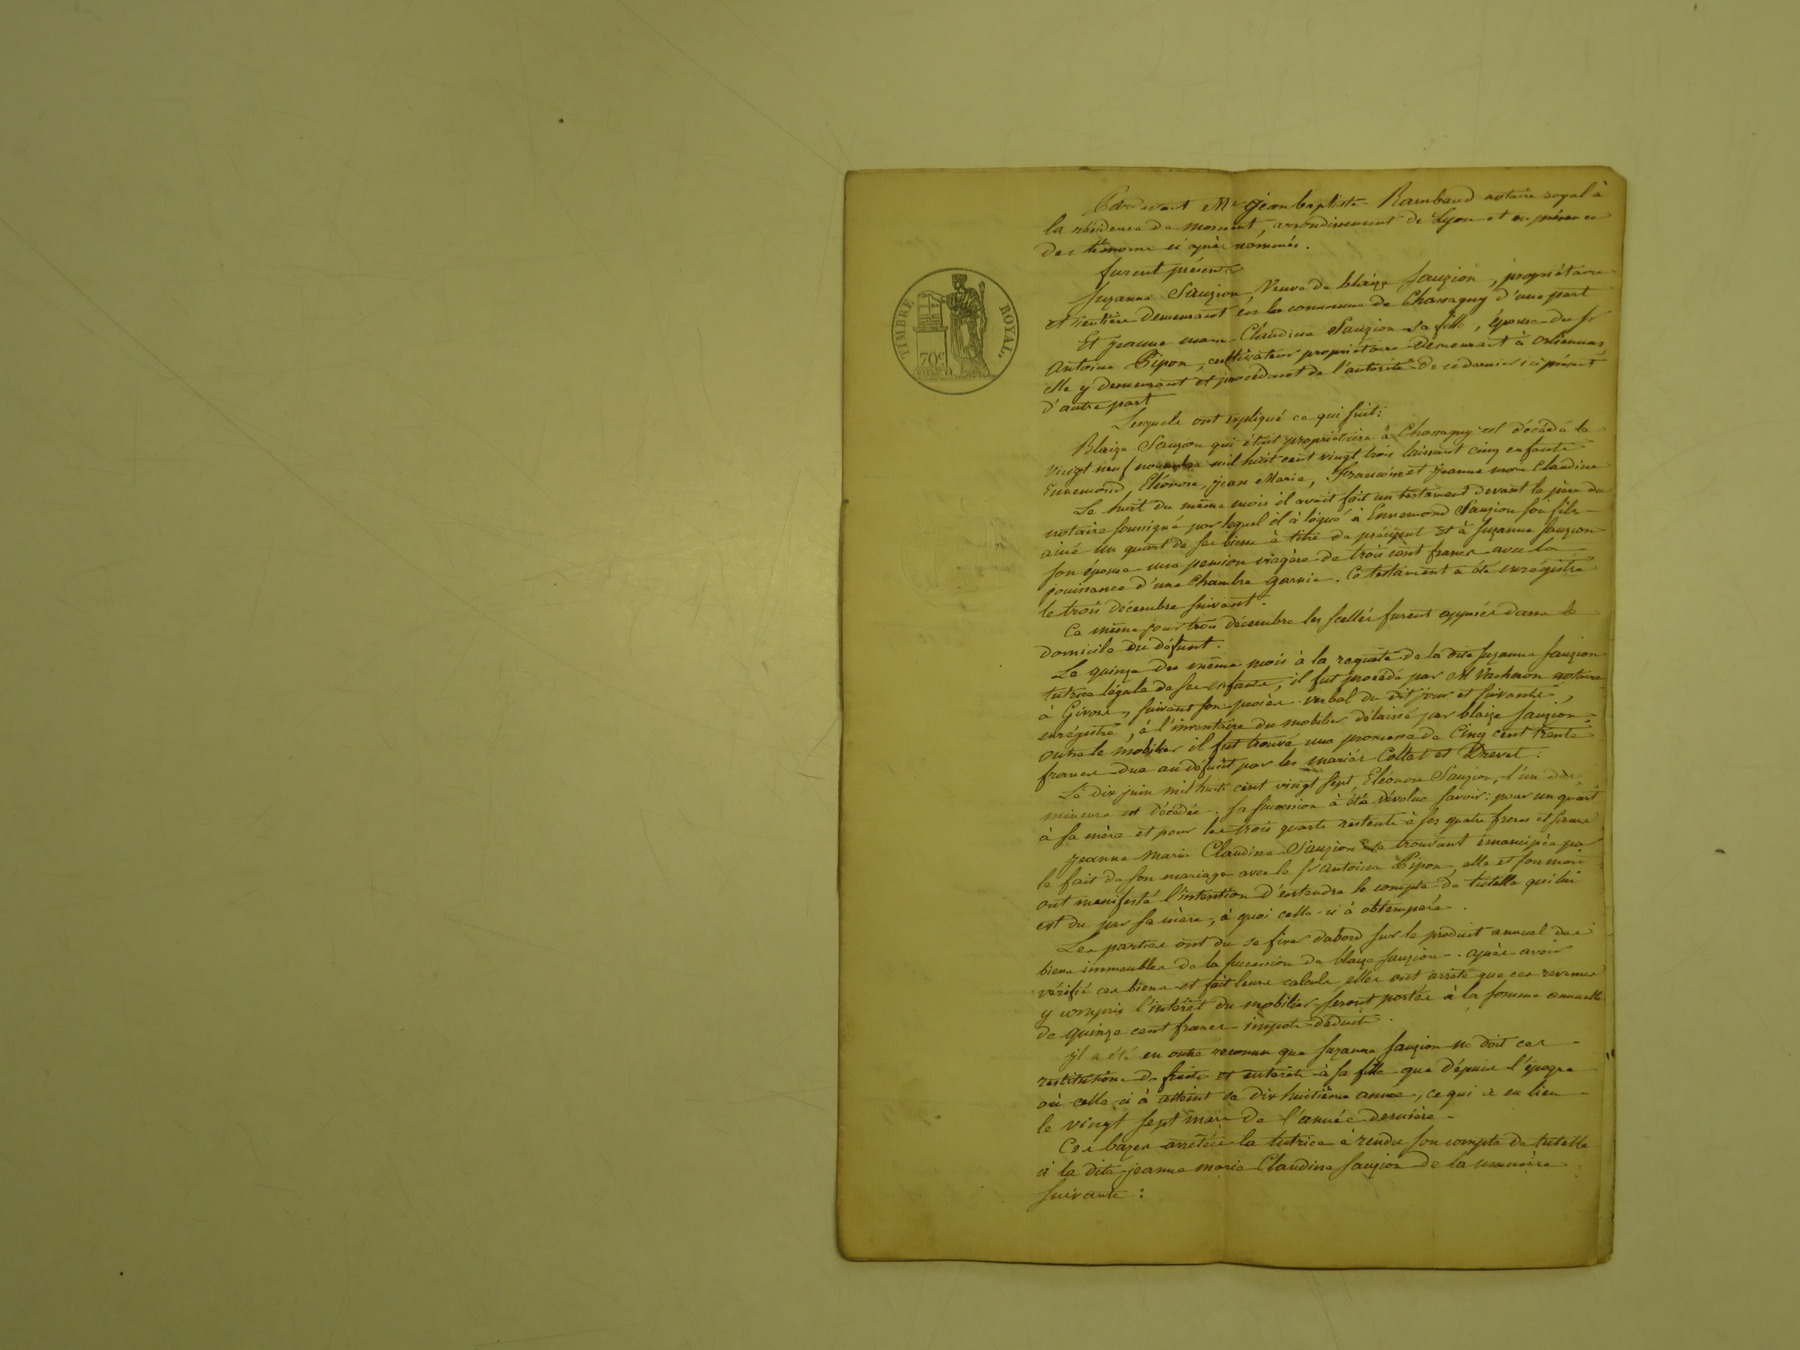 TIMBRE ROYAL
70c
Pardevant Me Jéan baptiste Rambaud notaire royal à
la résidence de mornant, arrondissement de Lyon et en présence
des témoins ci après nommés.
furent présents
Suzanne Sauzion, Veuve de blaize Sauzion, propriétaire
et rentière demeurant en la commune de Chassagny d'une part
Et jeanne marie Claudine Sauzion sa fille, épouse du sr
Antoine Pipon, cultivateur propriétaire demeurant à orlienas,
elle y demeurant et procédant de l'autorité de ce dernier ici présent
d'autre part
Lesquels ont expliqué ce qui suit:
Blaize Sauzion qui était propriétaire à Chassagny est décédé le
vingt neuf novembre mil huit cent vingt trois laissant cinq enfants
Ennemond, Eléonore, jean Marie, et jeanne marie Claudine
Le huit du même mois il avait fait un testament devant le père du
notaire soussigné par lequel il à légué à Ennemond Sauzion son fils
ainé un quart de ses biens à titre de préciput Et à Suzanne Sauzion
son épouse une pension viagère de trois cent francs avec la
jouissance d'une Chambre garnie. Ce testament a été enrégistré
le trois décembre suivant.
Ce même jour trois décembre les scellés furent apposés dans le
domicile du défunt.
Le quinze du même mois à la requête de la dite Suzanne Sauzion
tutrice légale de ses enfants, il fut procédé par M Vacheron notaire
à Givors, suivant son procès-verbal du dit jour et suivants,
enrégistré, à l'inventaire du mobilier délaissé par blaize Sauzion.
outre le mobilier il fut trouvé une promesse de Cinq cent trente
francs due au défunt par les mariés Collat et Drevet.
Le dix juin mil huit cent vingt sept Eléonore Sauzion, l'un des
mineurs est décédée. sa succession à été dévolue savoir: pour un quart
à sa mère et pour les trois quarts restents à ses quatre freres et sœurs
jeanne marie Claudine Sauzion se trouvant émancipée par
le fait de son mariage avec le sr Antoine Pipon, elle et son mari
ont manifesté l'intention d'entendre le compte de tutelle qui lui
est du par sa mère, à quoi celle-ci à obtempéré.
Les parties ont du se fixer dabord sur le produit annuel des
biens immeubles de la succession de blaize Sauzion. après avoir
vérifié ces biens et fait leurs calculs elles ont arrêté que ces revenus
y compris l'intérêt du mobilier seront portés à la somme annuelle
de quinze cent francs impots déduits.
il a été en outre reconnu que Suzanne Sauzion ne doit ces
restitutions de fruits et intérêts à sa fille que dépuis l'époque
où celle-ci à atteint sa dix huitième année, ce qui a eu lieu
le vingt sept mars de l'année dernière.
Ces bazes arrêtées la tutrice à rendu son compte de tutelle
à la dite jeanne marie Claudine Sauzion de la manière
suivante: